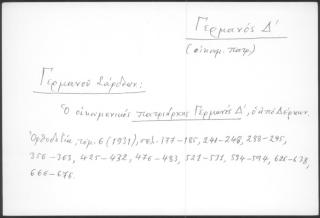 Γερμανός Δ'
(οἰκουμ. πατρ.)
Γερμανοῦ Σάρδεων:
Ὁ οἰκουμενικός πατριάρχης Γερμανός Δ', ὁ ἀπό Δέρκων.
Ὀρθοδοξία, τόμ. 6 (1931), σελ. 177-185, 241-248, 288-295,
356-363, 425-432, 476-483, 521-531, 594-594, 626-638,
666-676.